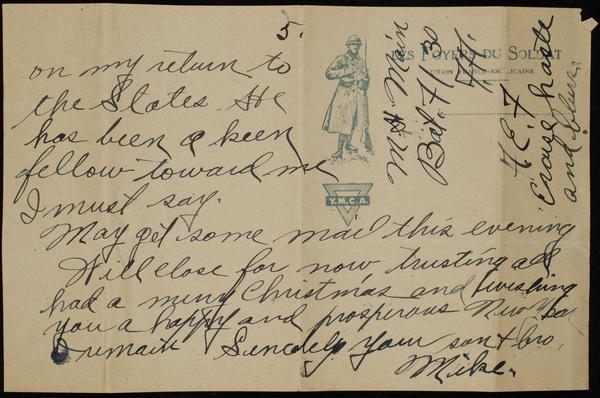 5.
LES FOYERS DU SOLDAT
UNION FRANCO-AMERICAINE
Y.M.C.A.
on my return to
the States. He
has been a keen
fellow toward me
I must say.
May get some mail this evening
Will close for now trusting all
had a merry Christmas and wishing
you a happy and prosperous New Year
I remain Sincerely your son & bro,
Mike.
M H Main
Bat. F 130
F.A.
A. E. F
Erause haste
and blurs.